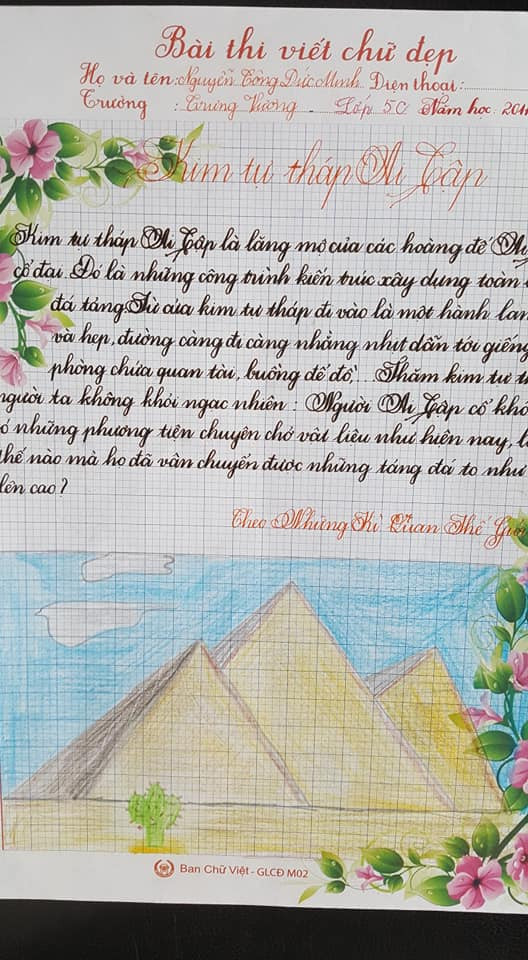 Bài thi viết chữ đẹp
Họ và tên: Nguyễn Công Đức Minh Điện thoại:
Trường : Trưng Vương - Lớp 5C Năm học: 201
Kim tự tháp Ai Cập
Kim tự tháp Ai Cập là lăng mộ của các hoàng đế Ai
cổ đại. Đó là những công trình kiến trúc xây dựng toàn
đá tảng. Từ cửa kim tự tháp đi vào là một hành lan
và hẹp, đường càng đi càng nhằng như dẫn tới giếng
phòng chứa quan tài, buồng để đồ,... Thăm kim tự t
người ta không khỏi ngạc nhiên: Người Ai Cập cổ khô
ó những phương tiện chuyên chở vật liệu như hiện nay, l
thế nào mà họ đã vận chuyển được những tảng đá to như
lên cao?
Theo Những Kì Quan Thế Giớ
Ban Chữ Việt - GLCĐ M02